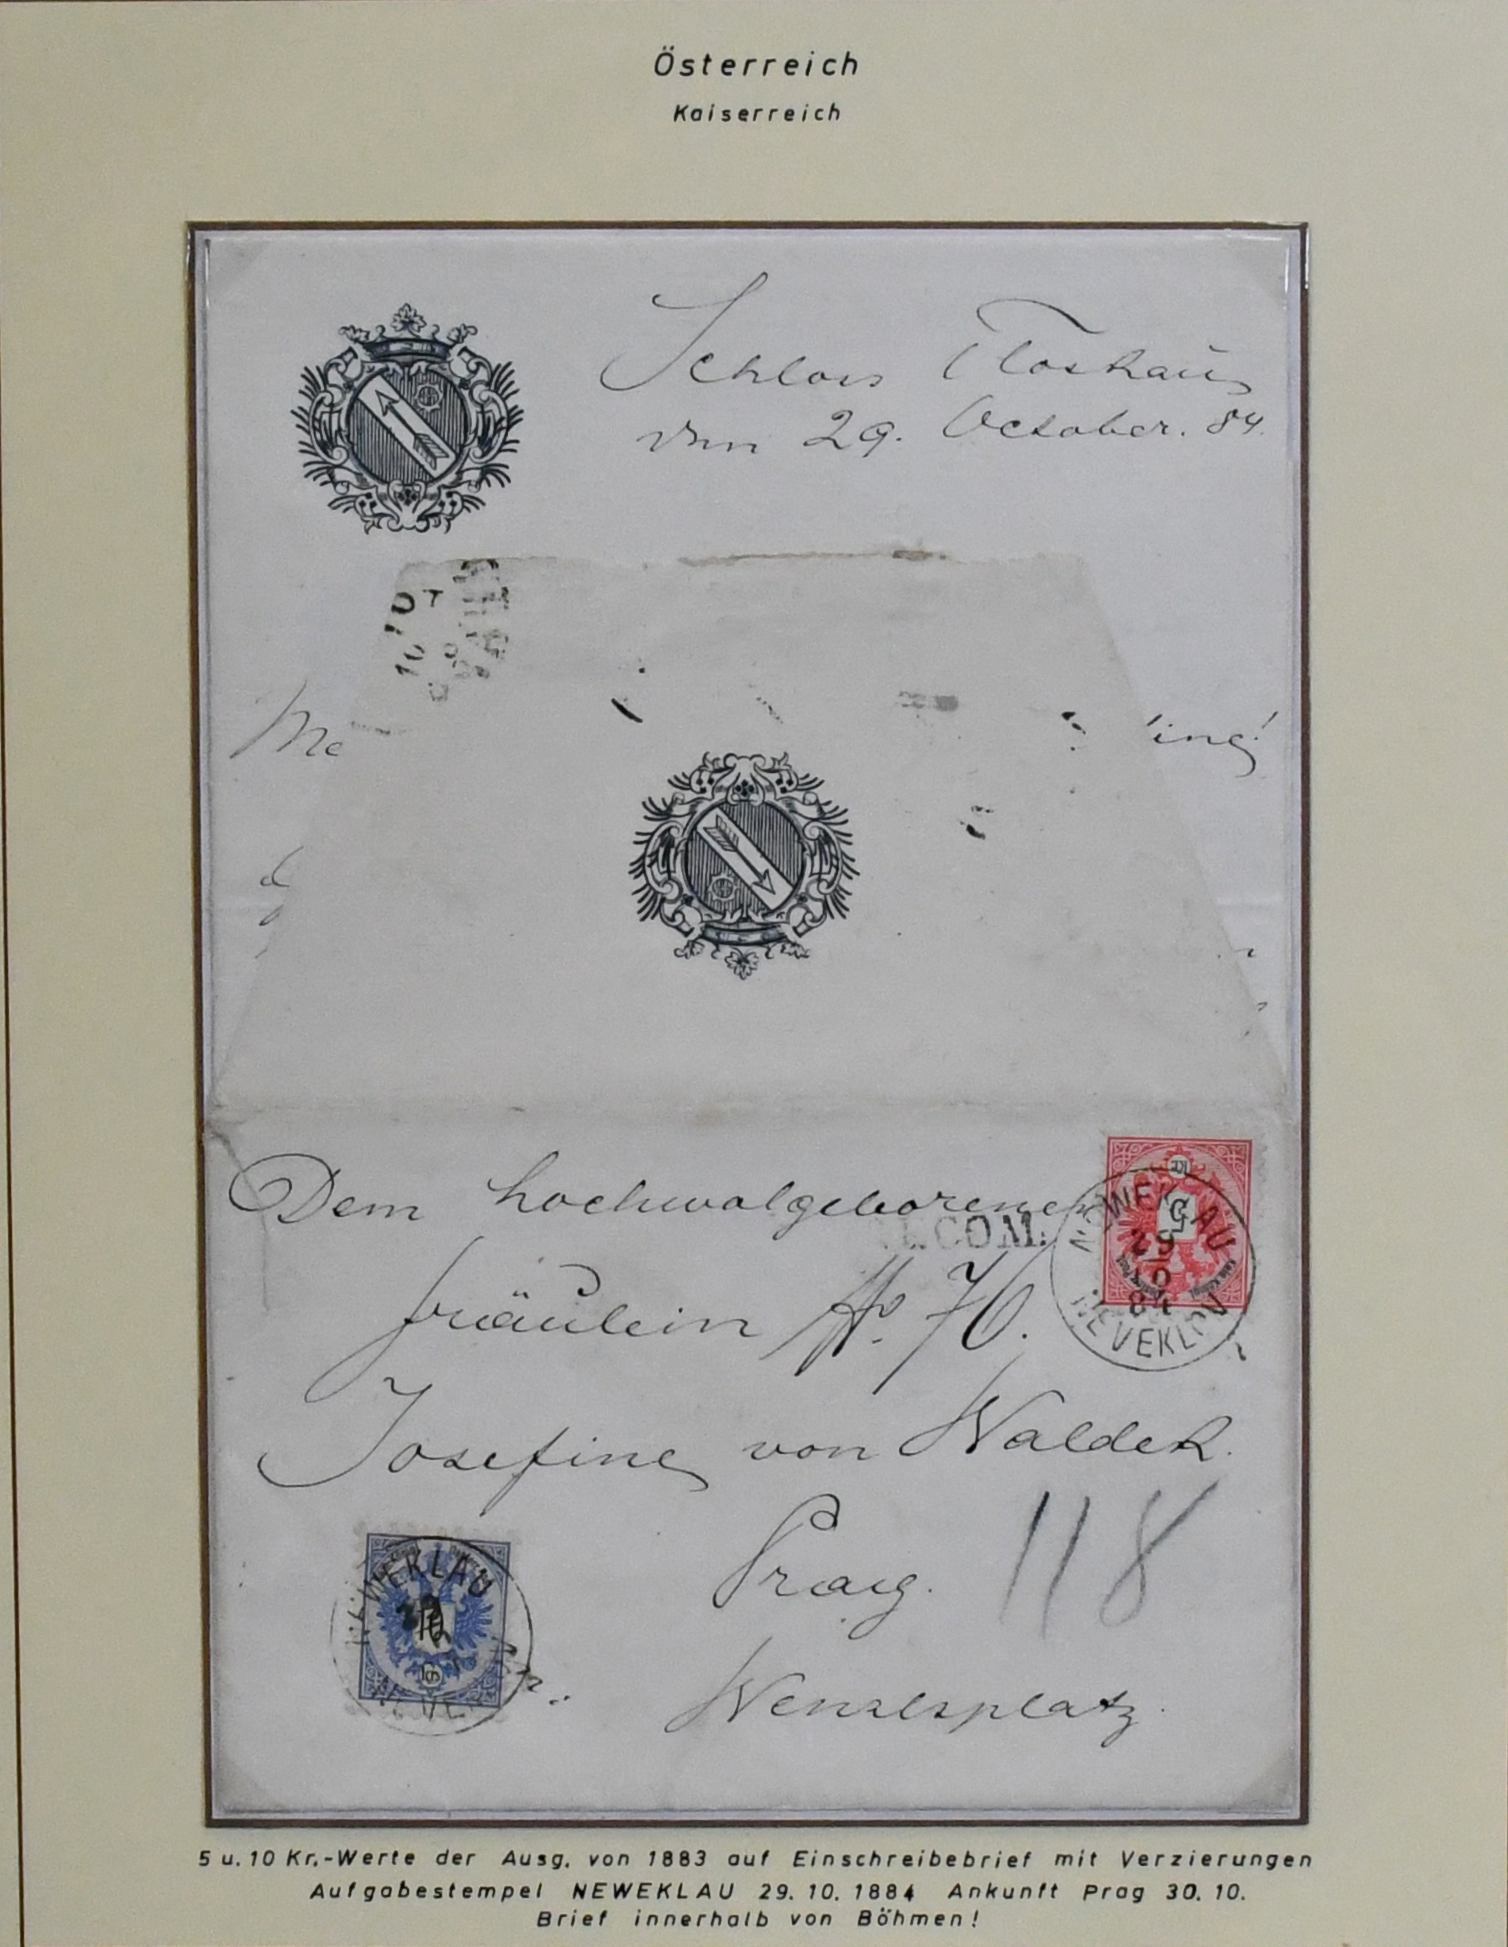 Österreich
Kaiserreich
Schloss Tloskau
vom 29. October. 84.
Me ing!
Dem hochwolgeborenen
RECOM.
Fräulein No. 76.
Josefine von Waldek.
Prag. 118
Wenzelsplatz.
NEWEKLAU
29
10
84
NEVEKLOV
5
NEWEKLAU
10
5 u. 10 Kr.-Werte der Ausg. von 1883 auf Einschreibebrief mit Verzierungen
Aufgabestempel NEWEKLAU 29. 10. 1884 Ankunft Prag 30. 10.
Brief innerhalb von Böhmen!